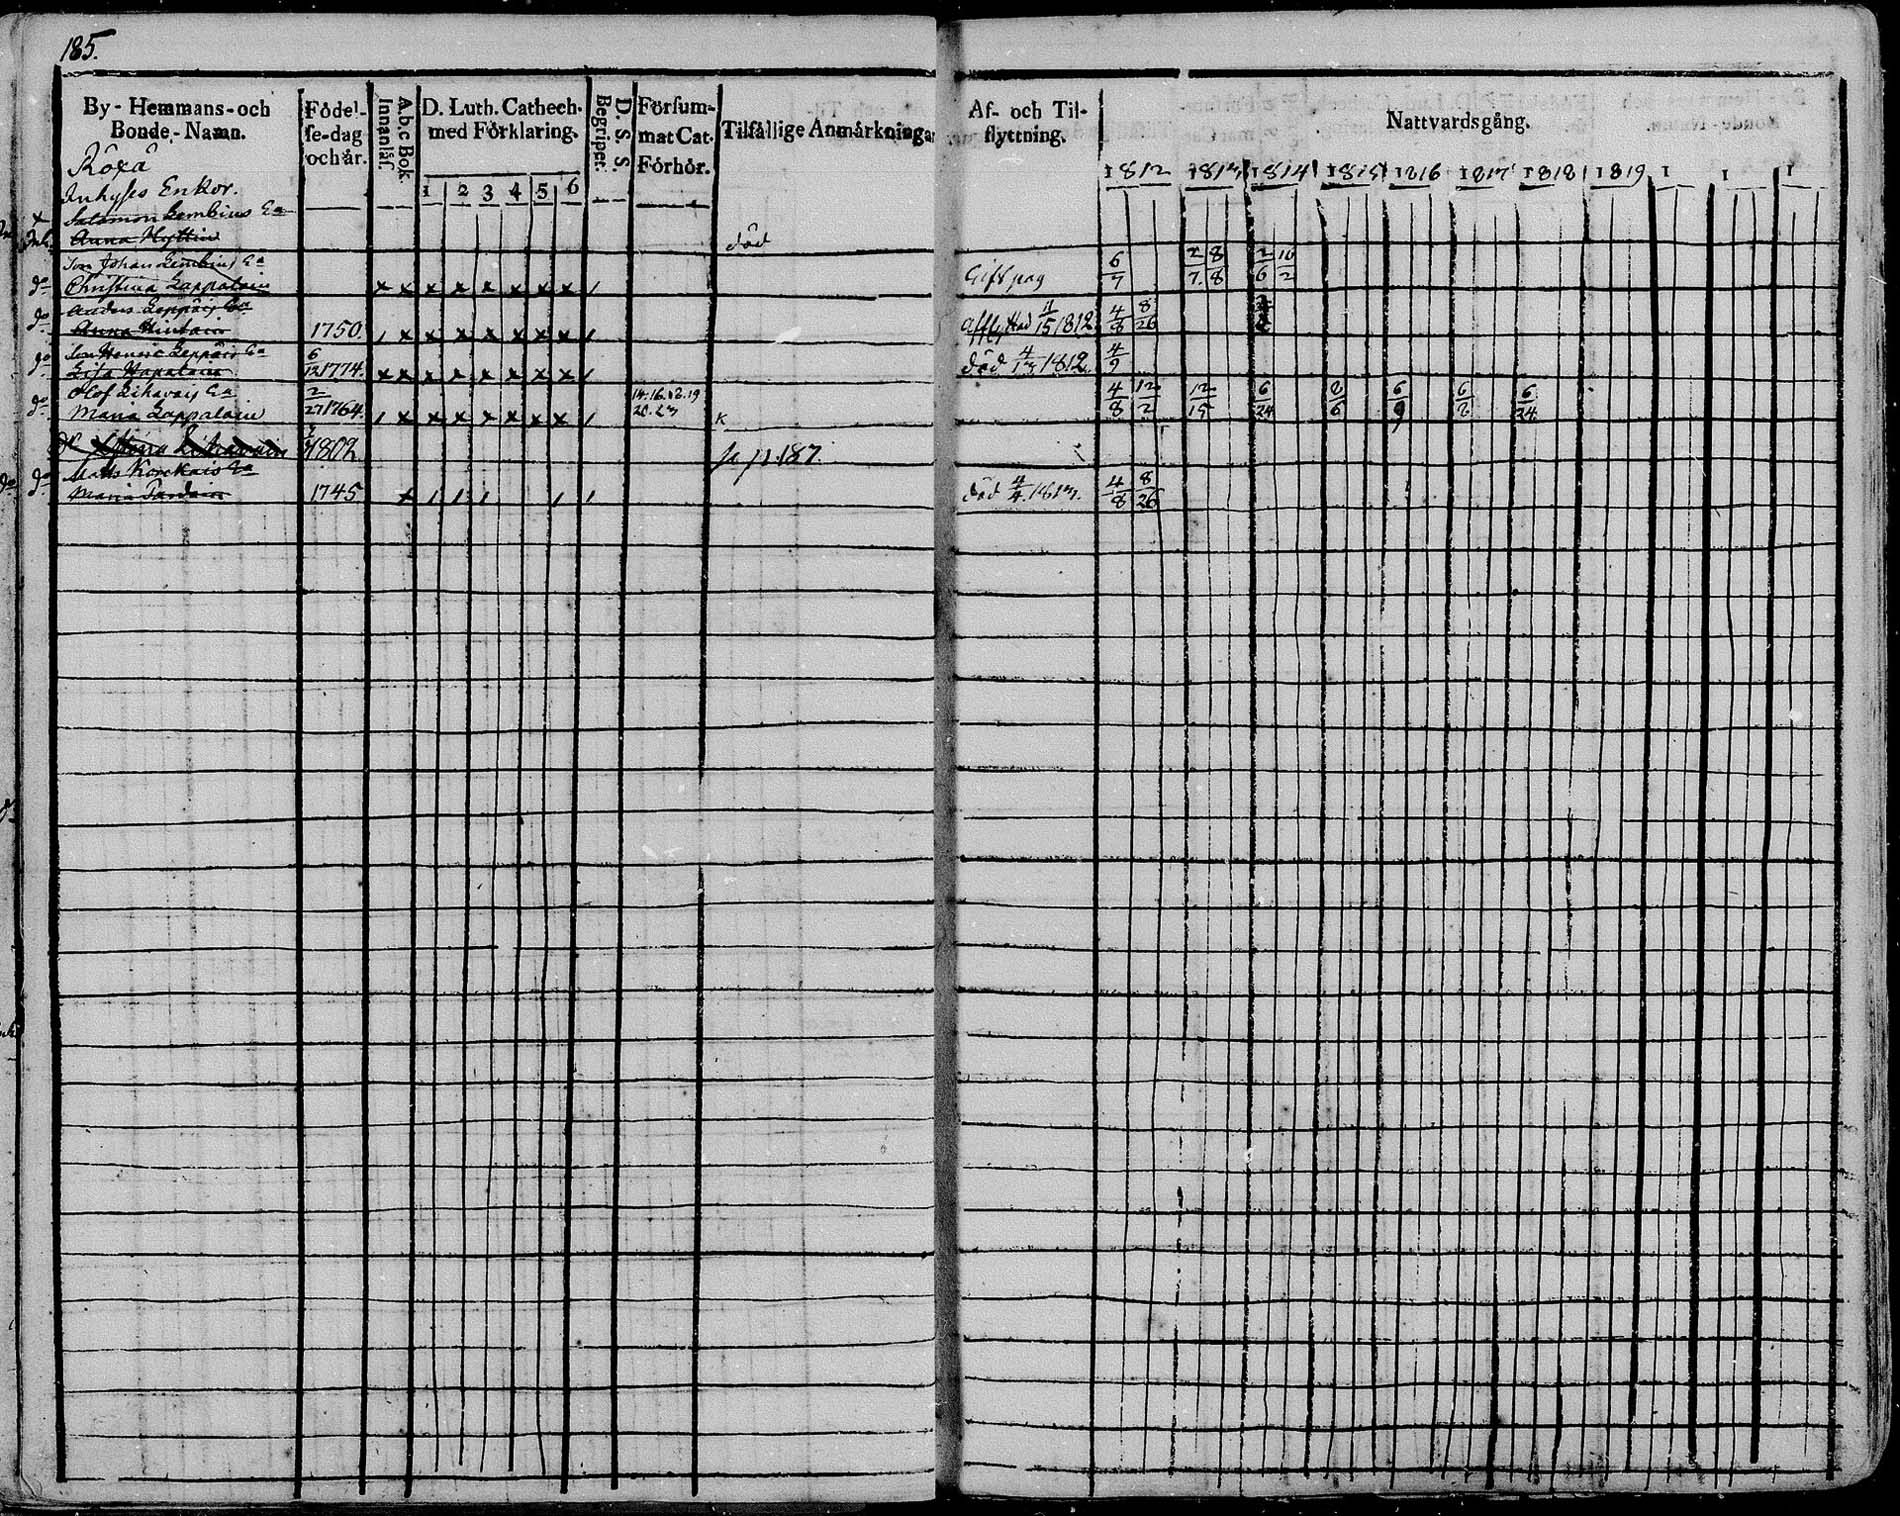 185.
By- Hemmans- och Bonde,- Namn.
Födel- se-dag och år.
A.b.c Bok. Innanläs.
D. Luth. Cathech. med Förklaring.
1 2 3 4 5 6
D. S. S. Begriper.
Försum- mat Cat. Förhör.
Tilfällige Anmärkningar
Af- och Til- flyttning.
Nattvardsgång.
1812 1813 1814 1815 1816 1817 1818 1819 1 1 1
Inhyses Enkor.
Salamon Lembius Ea
Anna Hyttin död
Son Johan Lembius Ea
Christina Lappalain Gift pag 6/7 2/7 8/8 2/6 16/2
Anders Leppäis Ea
Anna Hintain 1750. 4/15 1812 4/8 8/26
Son Henric Leppäis Ea
Lisa Hapalain 6/12 1774. död 4/13 1812 4/9
Olof Likavais Ea
Maria Lappalain 2/27 1764. 14. 16. 18. 19 20. 23 K 4/8 12/2 12/15 6/24 8/6 6/9 6/2 6/24
1802 p. 187.
Matts Korckais Ea
Maria Pardain 1745 död 4/4. 1813. 4/8 8/26